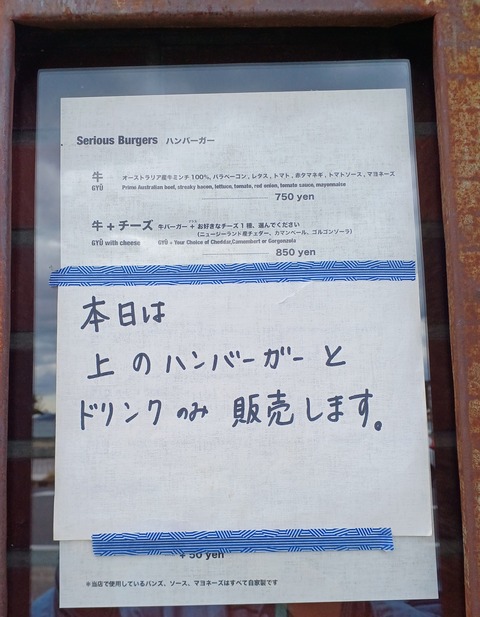 Serious Burgers ハンバーガー
牛 オーストラリア産牛ミンチ100%, バラベーコン, レタス, トマト, 赤タマネギ, トマトソース, マヨネーズ
GYŪ Prime Australian beef, streaky bacon, lettuce, tomato, red onion, tomato sauce, mayonnaise
750 yen
牛+チーズ 牛バーガー + お好きなチーズ1種、選んでください
(ニュージーランド産チェダー、カマンベール、ゴルゴンゾーラ)
GYŪ with cheese GYŪ + Your Choice of Cheddar,Camembert or Gorgonzola
850 yen
本日は
上のハンバーガーと
ドリンクのみ 販売します。
+ 50 yen
*当店で使用しているバンズ、ソース、マヨネーズはすべて自家製です